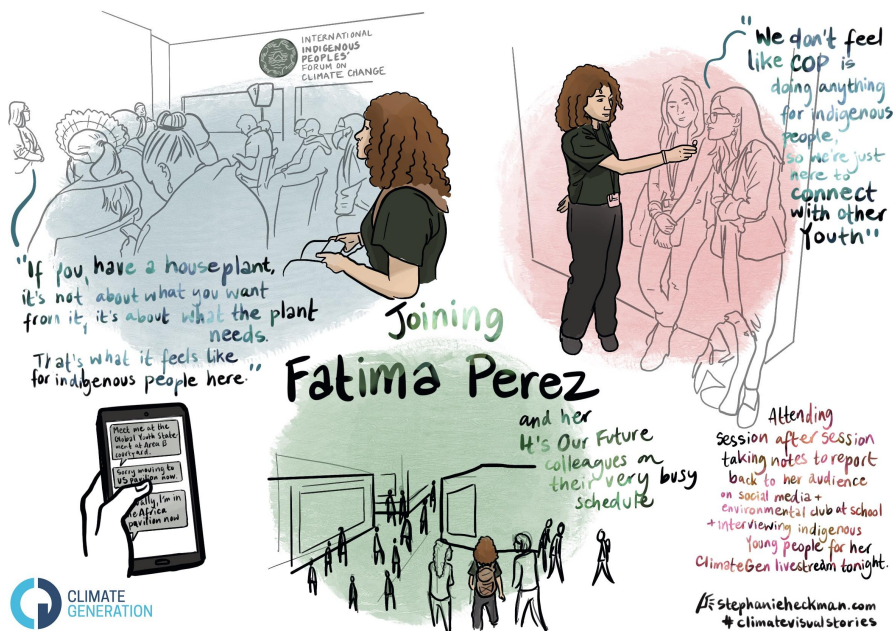 INTERNATIONAL
INDIGENOUS
PEOPLES'
FORUM ON
CLIMATE CHANGE
"We don't feel
like COP is
doing anything
for indigenous
people,
so we're just
here to
connect
with other
Youth"
"If you have a houseplant,
it's not about what you want
from it, it's about what the plant
needs.
That's what it feels like
for indigenous people here."
Joining
Fatima Perez
and her
It's Our Future
colleagues on
their very busy
schedule
Meet me at the
Global Youth State
ment at Area B
courtyard.
Sorry moving to
US pavilion now.
I'm in
Africa
pavilion now
Attending
session after session
taking notes to report
back to her audience
on social media +
environmental club at school
+ interviewing indigenous
young people for her
ClimateGen livestream tonight.
CLIMATE
GENERATION
stephanieheckman.com
# climatevisualstories